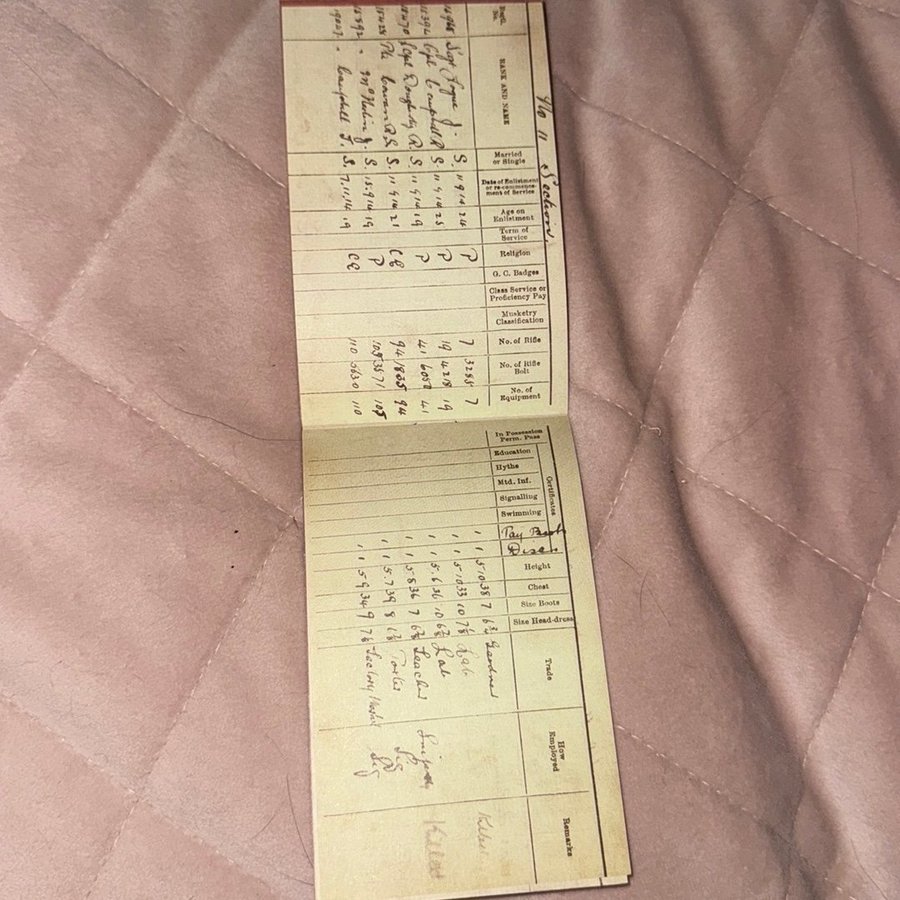 No 11 Section.
Regtl. No. RANK AND NAME Married or Single Date of Enlistment or re-commencement of Service Age on Enlistment Term of Service Religion G. C. Badges Class Service or Proficiency Pay Musketry Classification No. of Rifle No. of Rifle Bolt No. of Equipment
Sgt Logue J. S. 11 9 14 24 P 7 3288 7
Cpl Campbell R S. 11 9 14 25 P 19 4218 19
Dougherty R. S. 11 9 14 19 P 41 6052 41
Pte Cowan R.S. S. 11 9 14 21 CE 94 1835 94
" J. S. 15.9.14 19 P 105 3571 105
" Campbell F. S. 7.11.14 19 CE 110 5630 110
In Possession Perm. Pass Certificates Education Hythe Mtd. Inf. Signalling Swimming Pay Book Discs Height Chest Size Boots Size Head-dress Trade How Employed Remarks
1 1 5.10 38 7 6¾ Gardner Killed
1 1 5.10 33 10 7⅛ Lab
1 1 5.6 36 10 6⅞ Lab Killed
1 1 5.8 36 7 6⅞ Teacher
1 1 5.7 39 8 Porter Sig
1 1 5.9 34 9 7⅛ Factory Sig